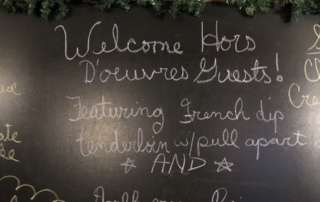 Welcome Hors
D'oeuvres Guests!
Featuring French dip
tenderloin w/pull apart
☆ AND ☆